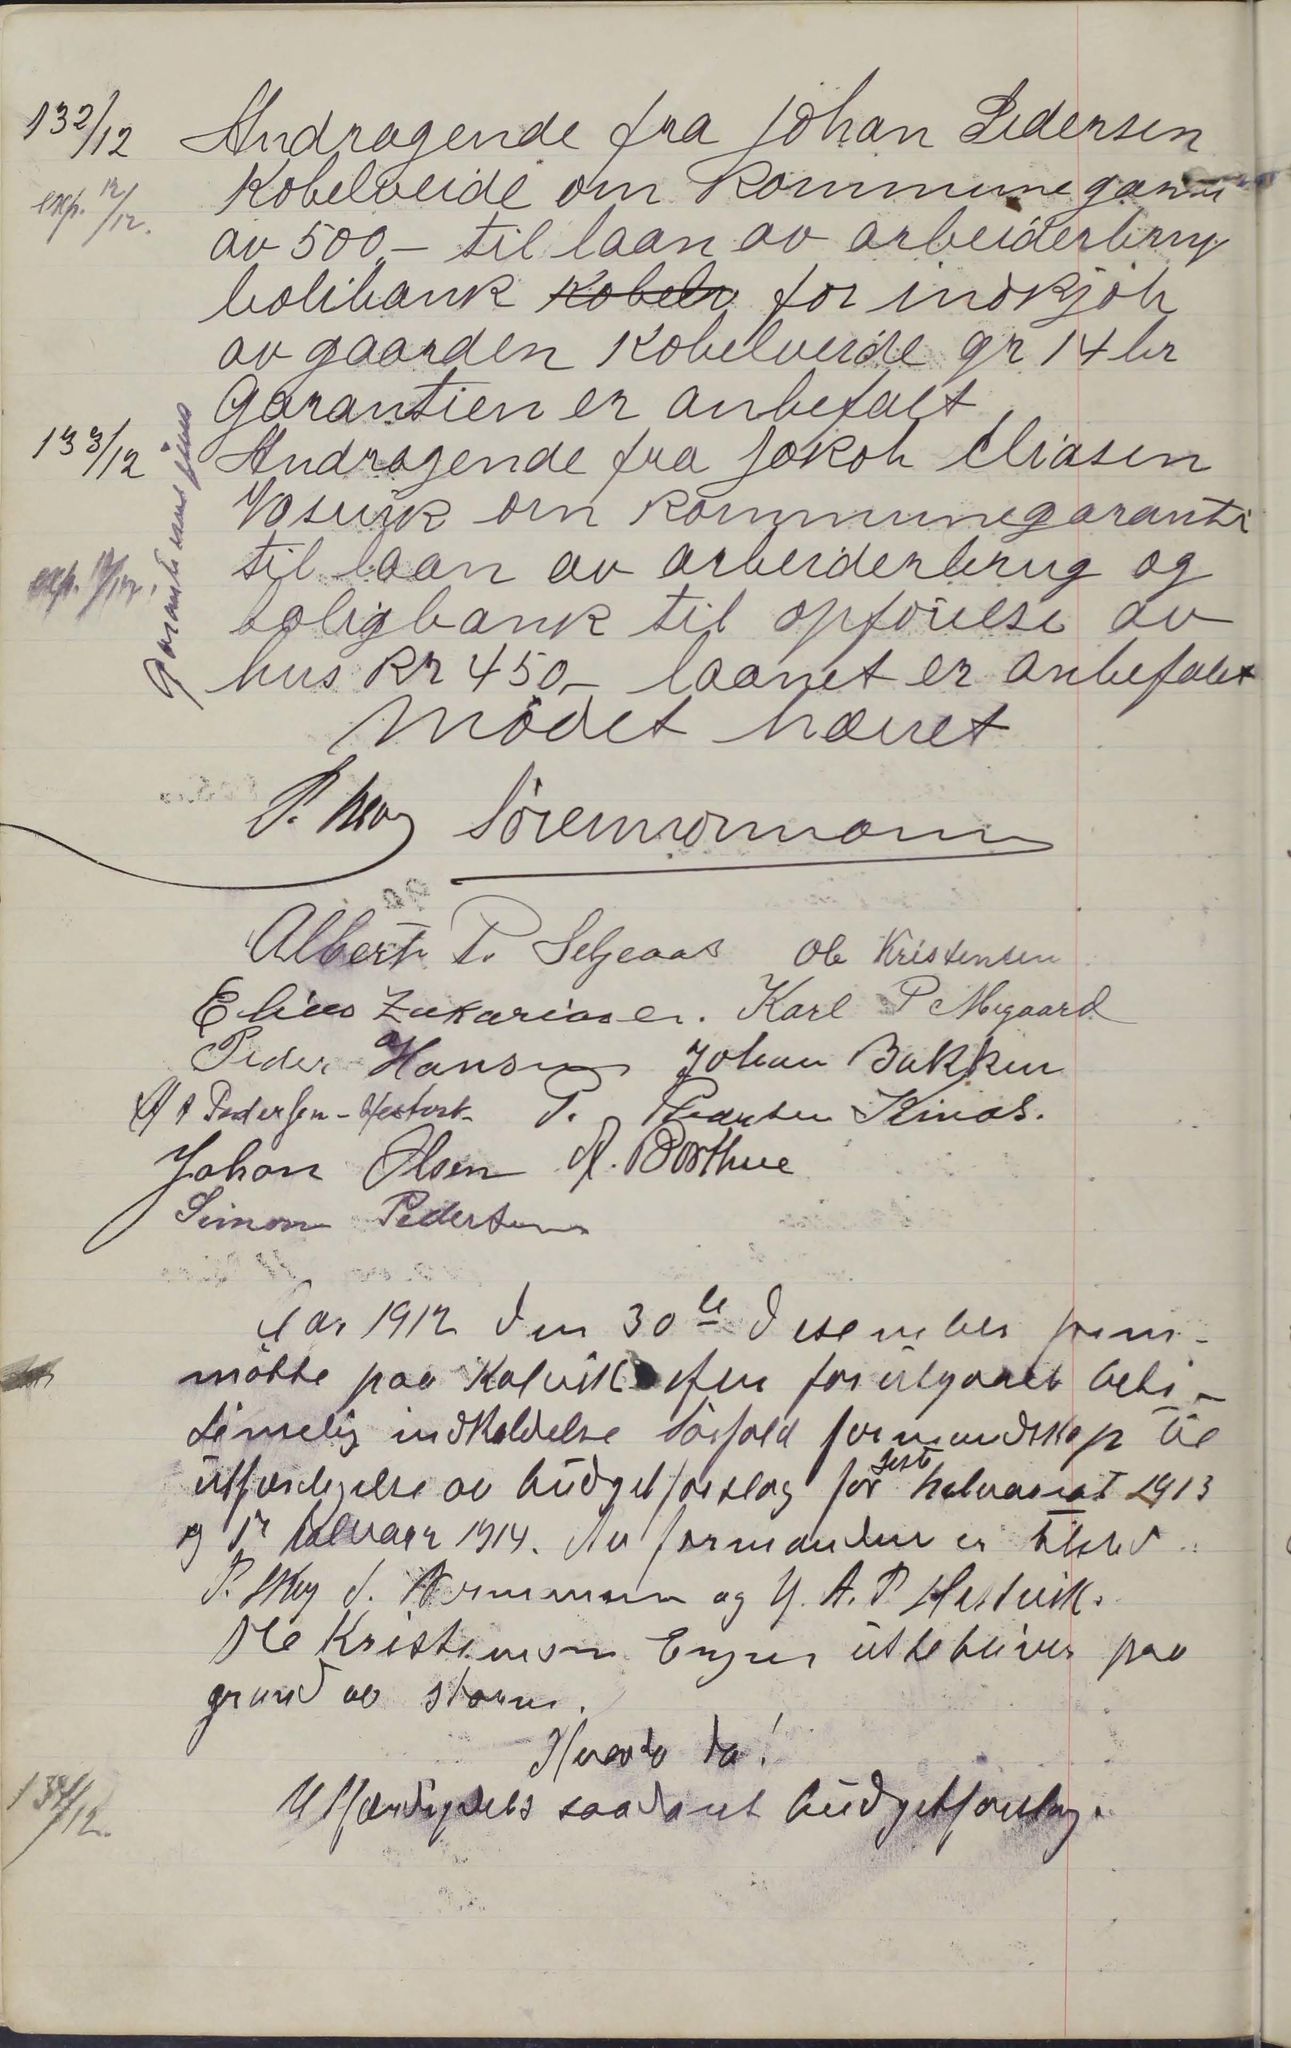 132/12 Andragende fra Johan Pedersen
exp. 12/12. Kobelveide om Kommunegaranti
av 500,- til laan av arbeiderbrug
bolibank Kobelv for indkjøb
av gaarden Kobelveide gr 14 br
Garantien er anbefalt
133/12 Andragende fra Jakob Eliasen
Vasvik om Kommunegaranti
exp. 12/12. til laan av arbeiderbrug og
boligbank til opførelse av
hus Kr 450,- laanet er anbefalet
Mødet hævet
P. Sørennormann
Albert P. Seljeaas Ole Kristensen
Elias Zakariasen. Karl P Mygaard
Peder Hansen Johan Bakken
A P Pedersen-Hestvik P. Kinas.
Johan Olsen A. Borthne
Simon Pedersen
Aar 1912 den 30te Desember frem-
møtte paa Kalvik efter forutgaaet beti-
temelig indkaldelse Sørfold formandskap til
utfærdigelse av büdgetforslag for siste halvaaret 1913
og 1ste halvaar 1914. Av formændene er tilsted:
P. S. Normann og A. P Hestvik.
Ole Kristensen Engen utebliver paa
grund av storm.
Hvorda da!
134/12. Utfærdigedes saadant büdgetforslag.